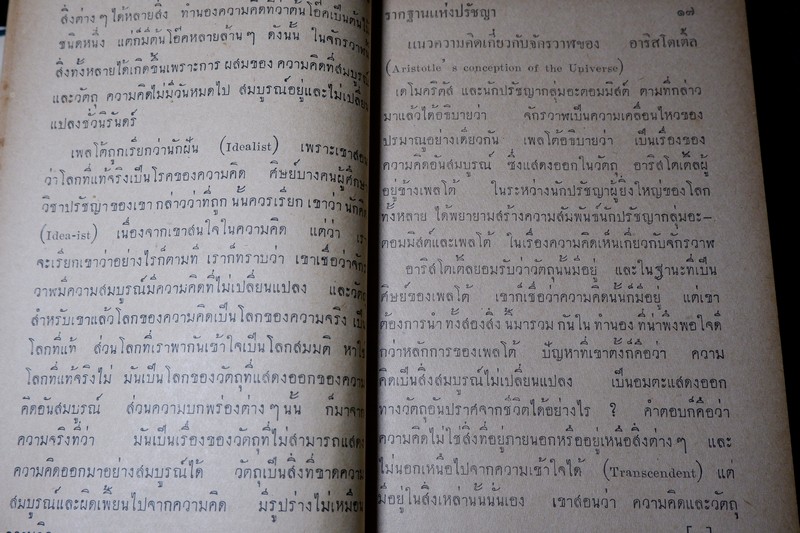 สิ่งต่าง ๆ ได้หลายสิ่ง ทำนองความคิดที่ว่าต้นโอ๊คเป็นต้นไม้
ชนิดหนึ่ง แต่ก็มีต้นโอ๊คหลายล้านๆ ดังนั้น ในจักรวาฬ
สิ่งทั้งหลายได้เกิดขึ้นเพราะการ ผสมของ ความคิดที่สมบูรณ์
และวัตถุ ความคิดไม่มีวันหมดไป สมบูรณ์อยู่และไม่เปลี่ยน
แปลงชั่วนิรันดร์
เพลโต้ถูกเรียกว่านักฝัน (Idealist) เพราะเขาสอน
ว่าโลกที่แท้จริงเป็นโรคของความคิด ศิษย์บางคนผู้ศึกษา
วิชาปรัชญาของเขา กล่าวว่าที่ถูก นั้นควรเรียก เขาว่า นักคิด
(Idea-ist) เนื่องจากเขาสนใจในความคิด แต่ว่า เรา
จะเรียกเขาว่าอย่างไรก็ตามที เราก็ทราบว่า เขาเชื่อว่าจักร
วาฬมีความสมบูรณ์มีความคิดที่ไม่เปลี่ยนแปลง และวัตถุ
สำหรับเขาแล้วโลกของความคิดเป็นโลกของความจริง เป็น
โลกที่แท้ ส่วนโลกที่เราพากันเข้าใจเป็นโลกสมมติ หาใช่
โลกที่แท้จริงไม่ มันเป็นโลกของวัตถุที่แสดงออกของความ
คิดอันสมบูรณ์ ส่วนความบกพร่องต่าง ๆ นั้น ก็มาจาก
ความจริงที่ว่า มันเป็นเรื่องของวัตถุที่ไม่สามารถแสดง
ความคิดออกมาอย่างสมบูรณ์ได้ วัตถุเป็นสิ่งที่ขาดความ
สมบูรณ์และผิดเพี้ยนไปจากความคิด มีรูปร่างไม่เหมือน
รากฐานแห่งปรัชญา ๑๗
แนวความคิดเกี่ยวกับจักรวาฬของ อาริสโตเติ้ล
(Aristotle's conception of the Universe)
เดโมคริตัส และนักปรัชญากลุ่มอะตอมมิสต์ ตามที่กล่าว
มาแล้วได้อธิบายว่า จักรวาฬเป็นความเคลื่อนไหวของ
ปรมาณูอย่างเดียวกัน เพลโต้อธิบายว่า เป็นเรื่องของ
ความคิดอันสมบูรณ์ ซึ่งแสดงออกในวัตถุ อาริสโตเติ้ลผู้
อยู่ข้างเพลโต้ ในระหว่างนักปรัชญาผู้ยิ่งใหญ่ของโลก
ทั้งหลาย ได้พยายามสร้างความสัมพันธ์นักปรัชญากลุ่มอะ-
ตอมมิสต์และเพลโต้ ในเรื่องความคิดเห็นเกี่ยวกับจักรวาฬ
อาริสโตเติ้ลยอมรับว่าวัตถุนั้นมีอยู่ และในฐานะที่เป็น
ศิษย์ของเพลโต้ เขาก็เชื่อว่าความคิดนั้นก็มีอยู่ แต่เขา
ต้องการนำ ทั้งสองสิ่ง นี้มารวม กันใน ทำนอง ที่น่าพึงพอใจดี
กว่าหลักการของเพลโต้ ปัญหาที่เขาตั้งก็คือว่า ความ
คิดเป็นสิ่งสมบูรณ์ไม่เปลี่ยนแปลง เป็นอมตะแสดงออก
ทางวัตถุอันปราศจากชีวิตได้อย่างไร ? คำตอบก็คือว่า
ความคิดไม่ใช่สิ่งที่อยู่ภายนอกหรืออยู่เหนือสิ่งต่าง ๆ และ
ไม่นอกเหนือไปจากความเข้าใจได้ (Transcendent) แต่
มีอยู่ในสิ่งเหล่านั้นนั่นเอง เขาสอนว่า ความคิดและวัตถุ